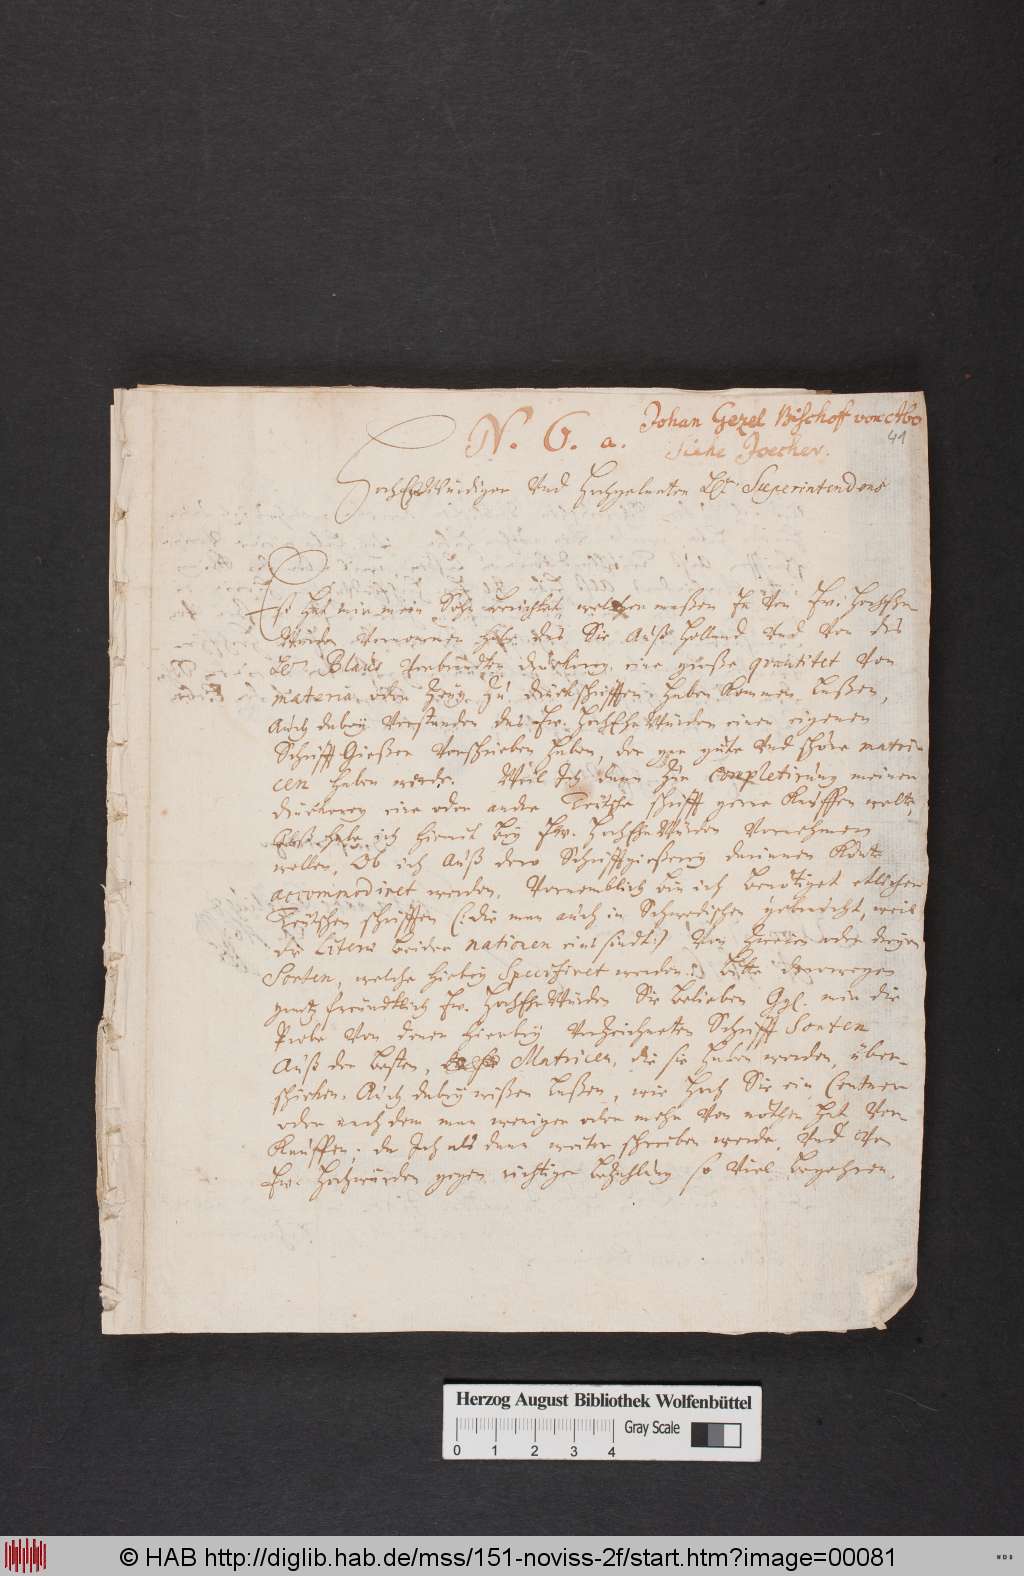 N. 6. a.
Johan Gezel Bischoff von Abo
siehe Joecher.
41
HochEhrWürdiger Und Hochgelarter Superintendens
Es hat mir mein Sohn berichtet, welcher maßen Er von Ew. HochEhr-
Würden Vernommen habe das Sie Auß Holland Und Von des
Blaus druckerey, eine große qvantitet Von
materia oder Zeug Zu druckschrifften haben Kommen laßen,
Auch dabey Verstanden das Ew. HochEhrWürden einen eigenen
Schrifft Gießer Verschrieben haben, der gar gute Und schöne matri-
cen haben werde. Weil Ich dann Zu completirung meiner
druckerey eine oder andre Teutsche schrifft gerne Kauffen wolte,
habe ich hiemit bey Ew. HochEhrWürden Vernehmen
wollen, Ob ich Auß dero Schrifftgießerey darinnen Könte
accommodiret werden. Vornemblich bin ich benötiget etlicher
Teutschen schrifften (: die man auch in Schwedischen gebraucht, weil
die Literæ beider nationen eins sindt :) Von Zweien oder dreyen
Sorten, welche hiebey Specificret werden. Bitte derowegen
gantz freundtlich Ew. HochEhrWürden Sie belieben mir die
Probe Von denen hierbey Verzeichneten Schrifft Sorten
Auß den besten, Matricen, die sie haben werden, über-
schicken. Auch dabey wißen laßen, wie hoch Sie ein Centner
oder nach dem man weniger oder mehr Von nöthen hat Ver-
Kauffen, da Ich als dann weiter schreiben werde, Und Von
Ew. Hochwürden gegen richtiger bezahlung so Viel begehren,
Herzog August Bibliothek Wolfenbüttel
Gray Scale
0 1 2 3 4
© HAB http://diglib.hab.de/mss/151-noviss-2f/start.htm?image=00081